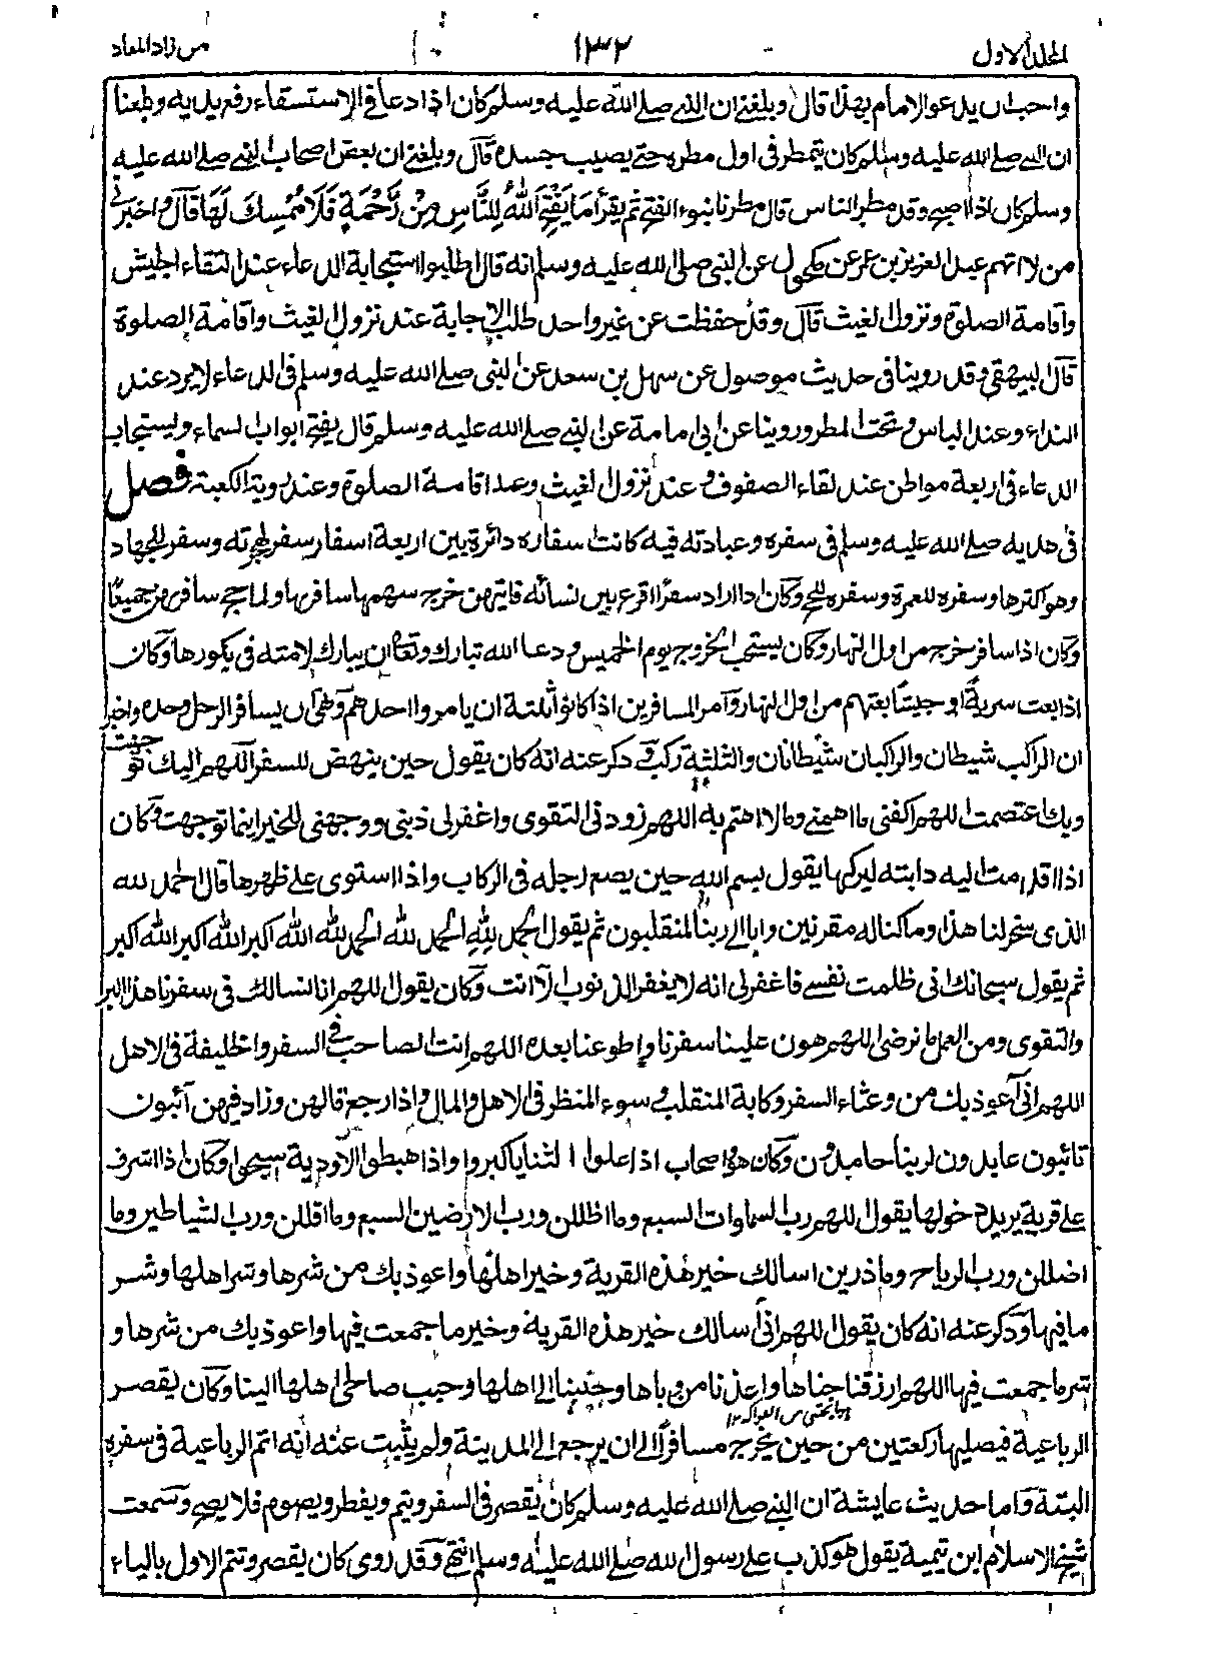 المجلد الاول ١٣٢ من زاد المعاد
واحب ان يدعو الامام بهذا قال وبلغني ان النبي صلى الله عليه وسلم كان اذا دعا في الاستسقاء رفع يديه وبلغنا
ان النبي صلى الله عليه وسلم كان يتمطر في اول مطرة حتى يصيب جسده قال وبلغني ان بعض اصحاب النبي صلى الله عليه
وسلم كان اذا اصبح وقد مطر الناس قال مطرنا بنوء الفتح ثم يقرأ مَا يَفْتَحِ اللّٰهُ لِلنَّاسِ مِنْ رَّحْمَةٍ فَلَا مُمْسِكَ لَهَا قال واخبرني
من لا اتهم عبد العزيز بن عمر عن مكحول عن النبي صلى الله عليه وسلم انه قال اطلبوا استجابة الدعاء عند التقاء الجيش
واقامة الصلوة ونزول الغيث قال وقد حفظت عن غير واحد طلب الاجابة عند نزول الغيث واقامة الصلوة
قال البيهقي وقد روينا في حديث موصول عن سهل بن سعد عن النبي صلى الله عليه وسلم في الدعاء لا يرد عند
النداء وعند الباس وتحت المطر وروينا عن ابي امامة عن النبي صلى الله عليه وسلم قال يفتح ابواب السماء ويستجاب
الدعاء في اربعة مواطن عند لقاء الصفوف وعند نزول الغيث وعند اقامة الصلوة وعند روية الكعبة فصل
في هديه صلى الله عليه وسلم في سفره وعبادته فيه كانت اسفاره دائرة بين اربعة اسفار سفر لهجرته وسفر للجهاد
وهو اكثرها وسفره للعمرة وسفره للحج وكان اذا اراد سفرًا اقرع بين نسائه فايتهن خرج سهمها سافر بها ولما حج سافر بهن جميعًا
وكان اذا سافر خرج من اول النهار وكان يستحب الخروج يوم الخميس ودعا الله تبارك وتعالى ان يبارك لامته في بكورها وكان
اذا بعث سرية او جيشًا بعثهم من اول النهار وآمر المسافرين اذا كانوا ثلثة ان يامروا احدهم ونهى ان يسافر الرجل وحده واخبر
ان الراكب شيطان والراكبان شيطانان والثلثة ركب وذكر عنه انه كان يقول حين ينهض للسفر اللهم اليك توجهت
وبك اعتصمت اللهم اكفني ما اهمني وما لا اهتم به اللهم زودني التقوى واغفر لي ذنبي ووجهني للخير اينما توجهت وكان
اذا قدمت اليه دابته ليركبها يقول بسم الله حين يضع رجله في الركاب واذا استوى على ظهرها قال الحمد لله
الذي سخر لنا هذا وما كنا له مقرنين وانا الى ربنا لمنقلبون ثم يقول الحمد لله الحمد لله الحمد لله الله اكبر الله اكبر الله اكبر
ثم يقول سبحانك اني ظلمت نفسي فاغفر لي انه لا يغفر الذنوب الا انت وكان يقول اللهم انا نسالك في سفرنا هذا البر
والتقوى ومن العمل ما ترضى اللهم هون علينا سفرنا واطو عنا بعده اللهم انت الصاحب في السفر والخليفة في الاهل
اللهم اني اعوذ بك من وعثاء السفر وكابة المنقلب وسوء المنظر في الاهل والمال واذا رجع قالهن وزاد فيهن آئبون
تائبون عابدون لربنا حامدون وكان هو واصحابه اذا علوا الثنايا كبروا واذا هبطوا الاودية سبحوا وكان اذا اشرف
على قرية يريد دخولها يقول اللهم رب السماوات السبع وما اظللن ورب الارضين السبع وما اقللن ورب الشياطير وما
اضللن ورب الرياح وما ذرين اسالك خير هذه القرية وخير اهلها واعوذ بك من شرها وشر اهلها وشر
ما فيها وذكر عنه انه كان يقول اللهم اني اسالك خير هذه القرية وخير ما جمعت فيها واعوذ بك من شرها و
شر ما جمعت فيها اللهم ارزقنا جناها واعذنا من وباها وحببنا الى اهلها وحبب صالحي اهلها الينا وكان يقصر
الرباعية فيصليها ركعتين من حين يخرج مسافرًا الى ان يرجع الى المدينة ولم يثبت عنه انه اتم الرباعية في سفره
البتة واما حديث عايشة ان النبي صلى الله عليه وسلم كان يقصر في السفر ويتم ويفطر ويصوم فلا يصح وسمعت
شيخ الاسلام ابن تيمية يقول هو كذب على رسول الله صلى الله عليه وسلم انتهى وقد روي كان يقصر وتتم الاول بالياء